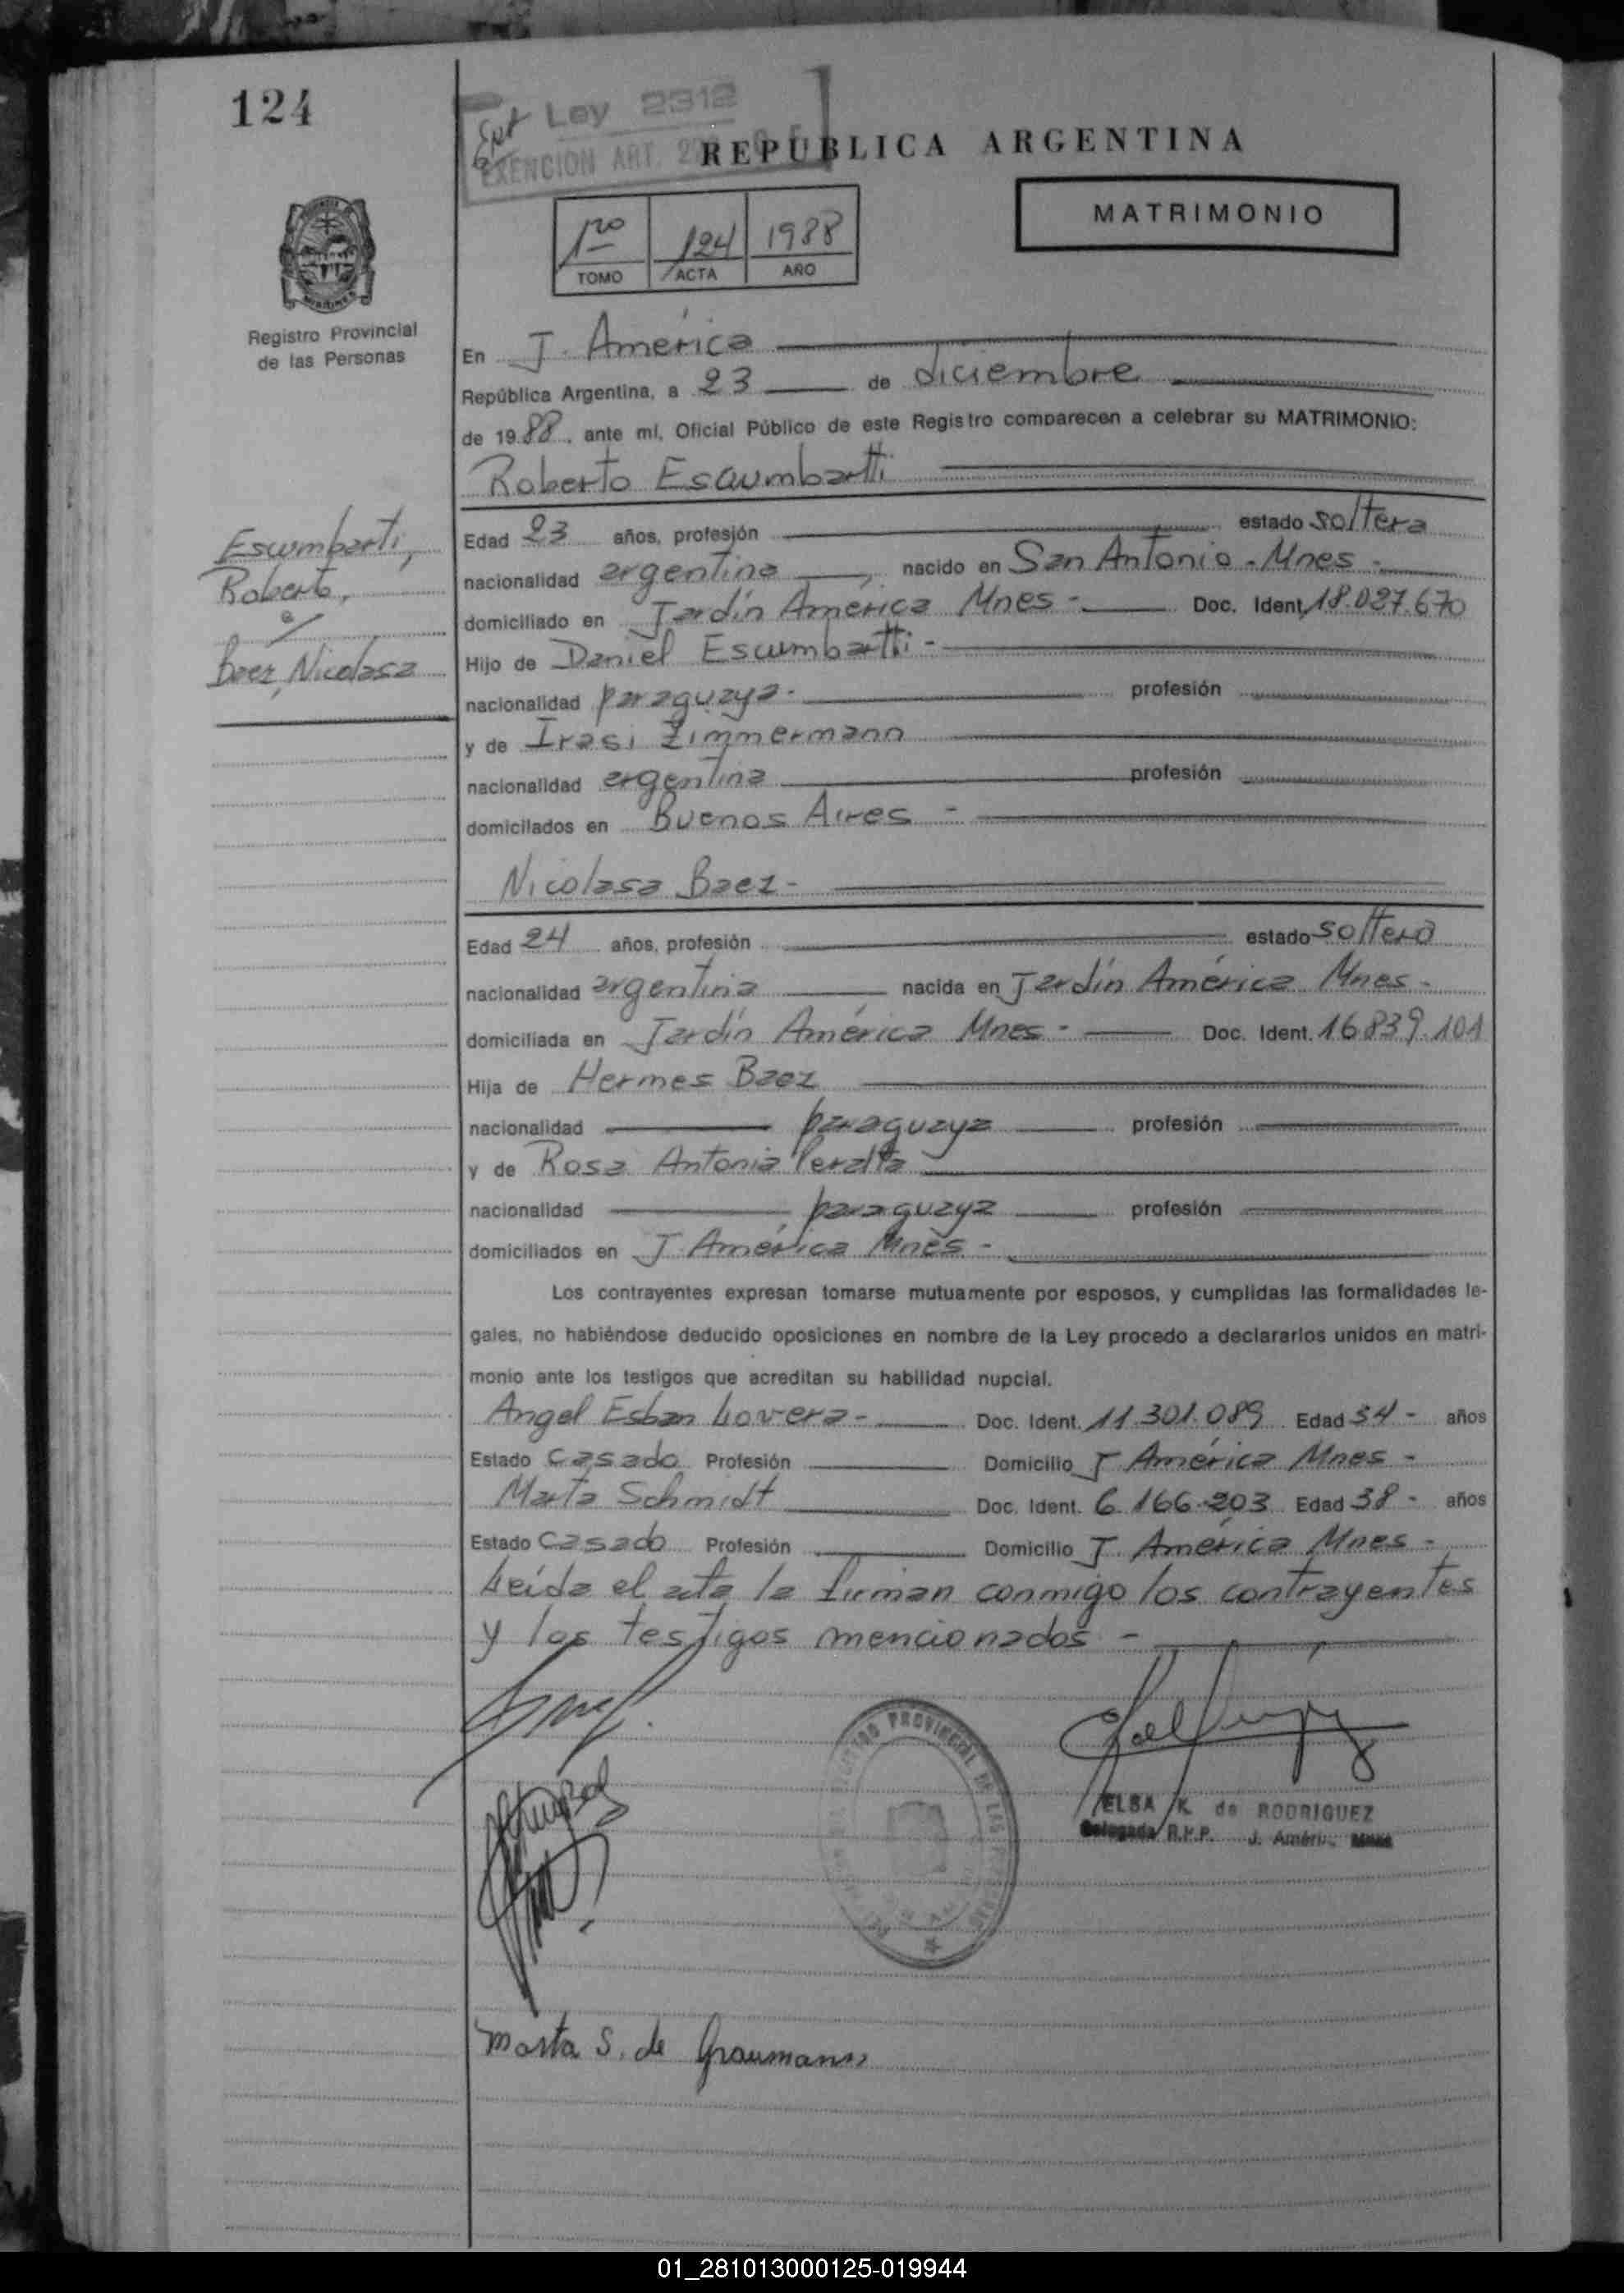 124
Ext Ley 2312
EXENCION ART.
REPUBLICA ARGENTINA
MATRIMONIO
1ro 124 1988
TOMO ACTA AÑO
Registro Provincial
de las Personas
En J. América
República Argentina, a 23 de diciembre
de 1988, ante mi, Oficial Público de este Registro comparecen a celebrar su MATRIMONIO:
Roberto Escumbartti
Escumbarti,
Roberto,
c/
Baez, Nicolasa
Edad 23 años, profesión estado soltera
nacionalidad argentina, nacido en San Antonio - Mnes -
domiciliado en Jardín América Mnes - Doc. Ident. 18.027.670
Hijo de Daniel Escumbartti -
nacionalidad paraguaya - profesión
y de Irasi Zimmermann
nacionalidad argentina profesión
domicilados en Buenos Aires -
Nicolasa Baez -
Edad 24 años, profesión estado soltera
nacionalidad argentina nacida en Jardín América Mnes -
domiciliada en Jardín América Mnes - Doc. Ident. 16.839.101
Hija de Hermes Baez
nacionalidad paraguaya profesión
y de Rosa Antonia Peralta
nacionalidad paraguaya profesión
domiciliados en J. América Mnes -
Los contrayentes expresan tomarse mutuamente por esposos, y cumplidas las formalidades le-
gales, no habiéndose deducido oposiciones en nombre de la Ley procedo a declararlos unidos en matri-
monio ante los testigos que acreditan su habilidad nupcial.
Angel Esban Lovera - Doc. Ident. 11.301.089 Edad 34 - años
Estado Casado Profesión Domicilio J. América Mnes -
Marta Schmidt Doc. Ident. 6.166.203 Edad 38 - años
Estado Casado Profesión Domicilio J. América Mnes -
Leída el acta la firman conmigo los contrayentes
y los testigos mencionados -
REGISTRO PROVINCIAL DE LAS PERSONAS
ELSA K. de RODRIGUEZ
Delegada R.P.P. J. Améri. Mnes
Marta S. de Graumann
01_281013000125-019944